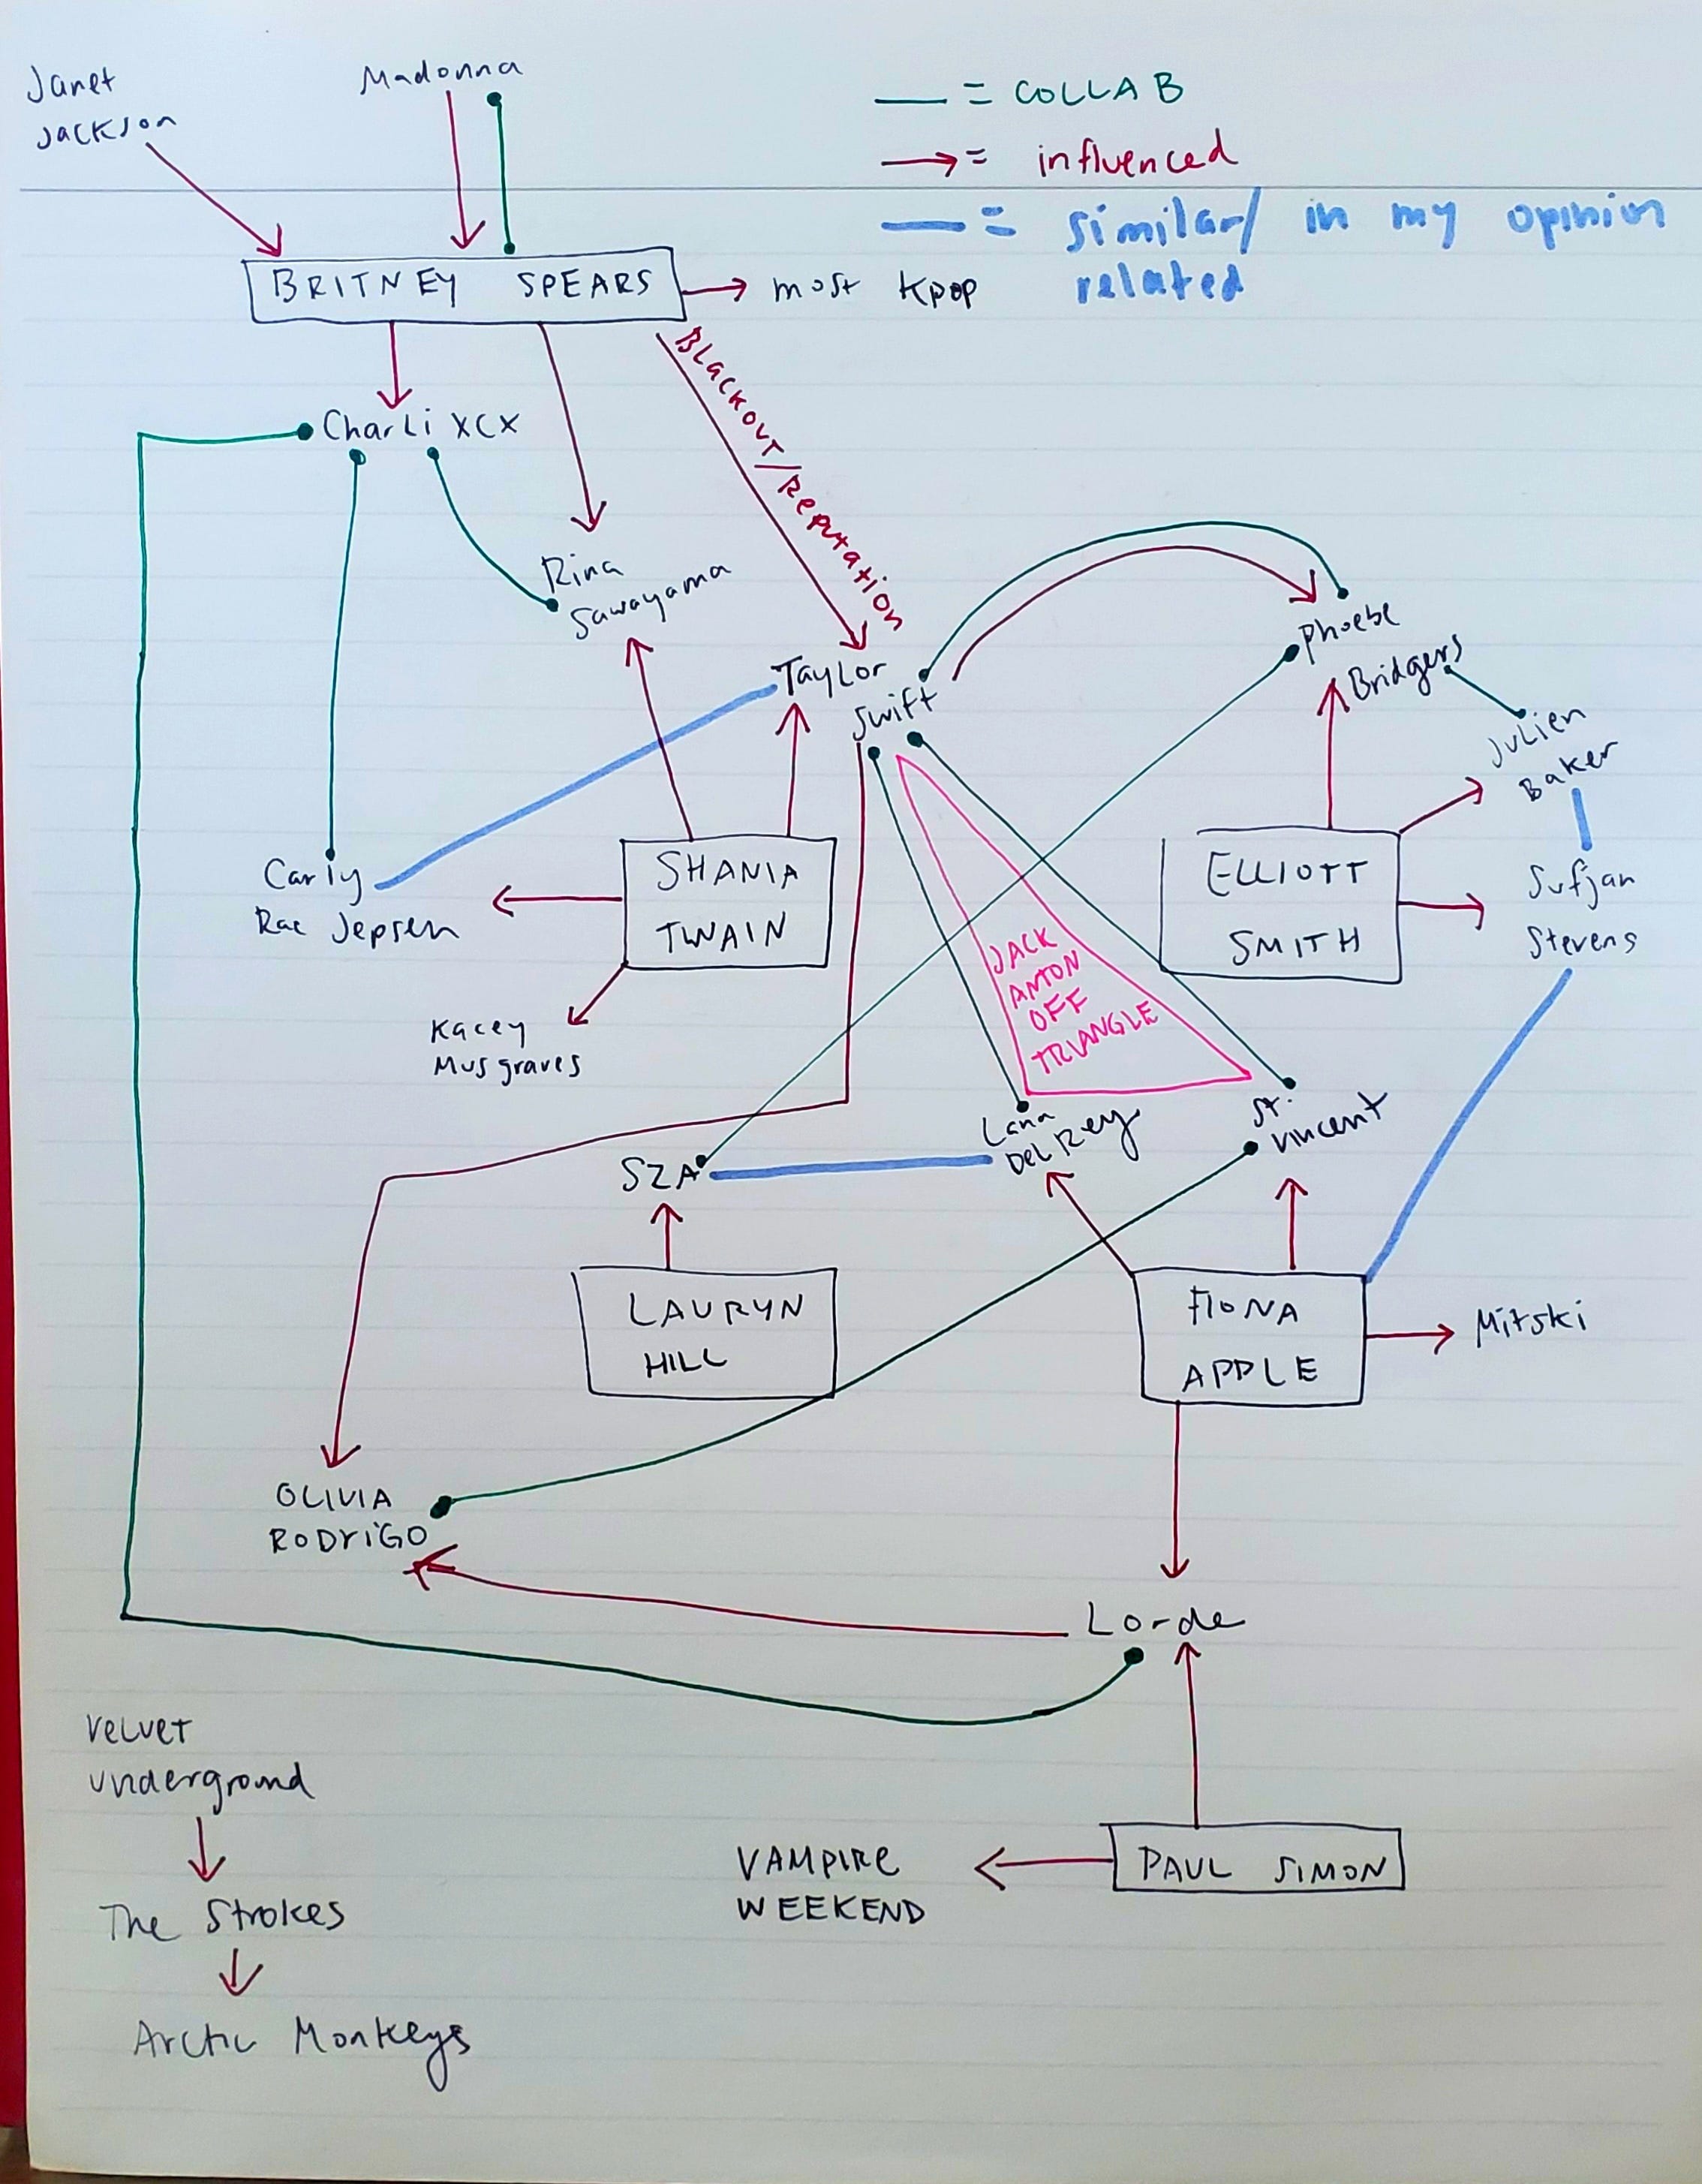 Janet
Jackson
Madonna
= COLLAB
= influenced
= similar/ in my opinion
related
BRITNEY SPEARS
most Kpop
BLackout/Reputation
CharLi XCX
Rina
Sawayama
TayLor
Swift
Phoebe
Bridgers
JuLien
Baker
Carly
Rae Jepsen
SHANIA
TWAIN
ELLIOTT
SMITH
Sufjan
Stevens
JACK
ANTON
OFF
TRIANGLE
Kacey
Musgraves
SZA
Lana
DeL Rey
St.
Vincent
LAURYN
HILL
FIONA
APPLE
Mitski
OLIVIA
RODRiGO
Lorde
VeLvet
underground
The Strokes
Arctic Monkeys
VAMPIRE
WEEKEND
PAUL SIMON